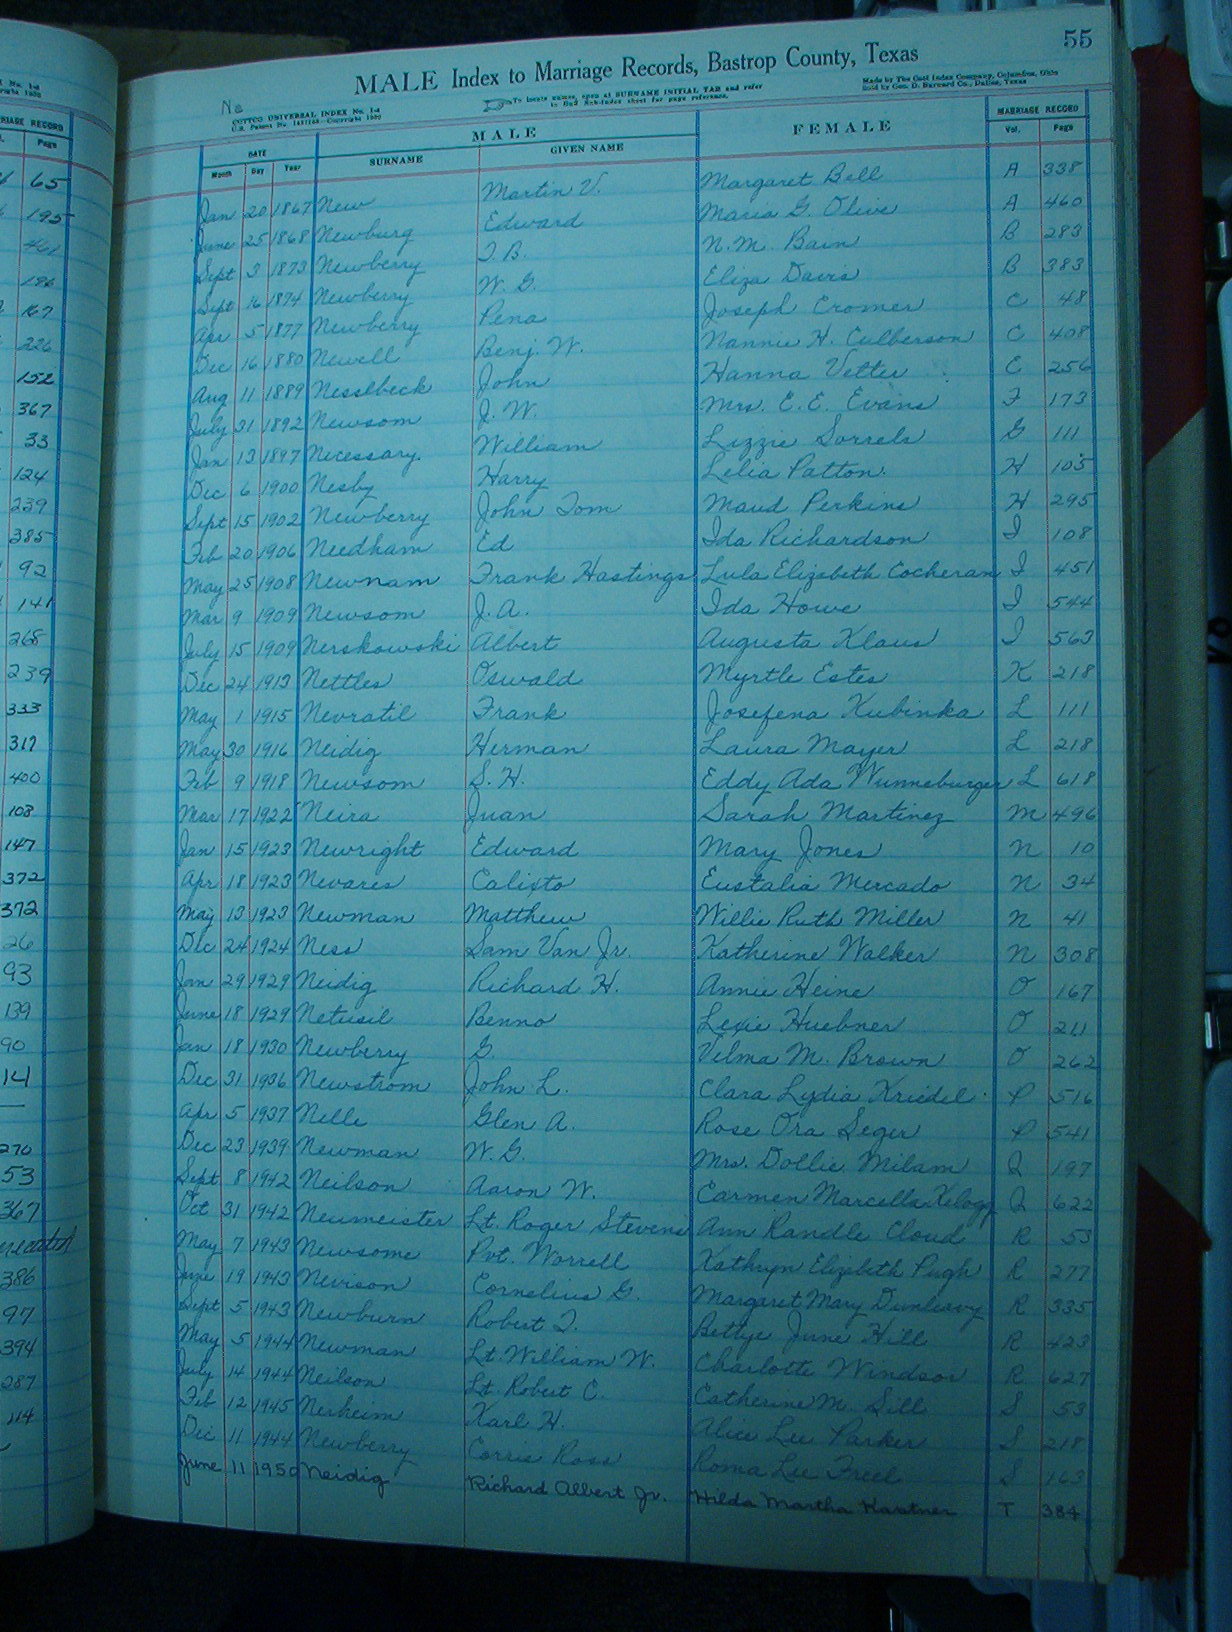 MALE Index to Marriage Records, Bastrop County, Texas
55
Ne
COTTCO UNIVERSAL INDEX No. 1-4
To locate names, open at SURNAME INITIAL TAB and refer
to Sub-Index sheet for page reference.
Made by The Cott Index Company, Columbus, Ohio
Sold by Geo. D. Barnard Co., Dallas, Texas
DATE MALE FEMALE MARRIAGE RECORD
Month Day Year SURNAME GIVEN NAME Vol. Page
Jan 20 1867 New Martin V. Margaret Bell A 338
June 25 1868 Newburg Edward Maria G. Olive A 460
Sept 3 1873 Newberry T. B. N. M. Bain B 283
Sept 16 1874 Newberry W. G. Eliza Davis B 383
Apr 5 1877 Newberry Pena Joseph Cromer C 48
Dec 16 1880 Newell Benj. W. Nannie H. Culberson C 408
Aug 11 1889 Nesslbeck John Hanna Vetter E 256
July 31 1892 Newsom J. W. Mrs. E. E. Evans F 173
Jan 13 1897 Necessary William Lizzie Sorrels G 111
Dec 6 1900 Nesby Harry Lelia Patton H 105
Sept 15 1902 Newberry John Tom Maud Perkins H 295
Feb 20 1906 Needham Ed Ida Richardson I 108
May 25 1908 Newnam Frank Hastings Lula Elizabeth Cocheran I 451
Mar 9 1909 Newsom J. A. Ida Howe I 544
July 15 1909 Nerskowski Albert Augusta Klaus I 563
Dec 24 1913 Nettles Oswald Myrtle Estes K 218
May 1 1915 Nevratil Frank Josefena Kubinka L 111
May 30 1916 Neidig Herman Laura Mayer L 218
Feb 9 1918 Newsom S. H. Eddy Ada Wunneburger L 618
Mar 17 1922 Neira Juan Sarah Martinez M 496
Jan 15 1923 Newright Edward Mary Jones N 10
Apr 18 1923 Nevares Calixto Eustalia Mercado N 34
May 13 1923 Newman Matthew Willie Ruth Miller N 41
Dec 24 1924 Ness Sam Van Jr. Katherine Walker N 308
Jan 29 1929 Neidig Richard H. Annie Heine O 167
June 18 1929 Netusil Benno Lexie Huebner O 211
Jan 18 1930 Newberry G. Velma M. Brown O 262
Dec 31 1936 Newstrom John L. Clara Lydia Kriedel P 516
Apr 5 1937 Nelle Glen A. Rose Ora Seger P 541
Dec 23 1939 Newman W. G. Mrs. Dollie Milam Q 197
Sept 8 1942 Neilson Aaron W. Carmen Marcella Kelogg Q 622
Oct 31 1942 Neumeister Lt. Roger Stevens Ann Randle Cloud R 53
May 7 1943 Newsome Pvt. Worrell Kathryn Elizabeth Pugh R 277
June 19 1943 Nevison Cornelius G. Margaret Mary Dunleavy R 335
Sept 5 1943 Newburn Robert T. Bettye June Hill R 423
May 5 1944 Newman Lt. William W. Charlotte Windsor R 627
July 14 1944 Neilson Lt. Robert C. Catherine M. Sill S 53
Feb 12 1945 Nerheim Karl H. Alice Lee Parker S 218
Dec 11 1944 Newberry Corris Ross Roma Lee Freel S 163
June 11 1950 Neidig Richard Albert Jr. Hilda Martha Kastner T 384